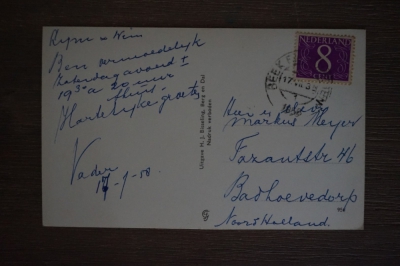 Ben vermoedelijk
Zaterdagavond
19³⁰ a 20 uur
thuis
Hartelijke groeten
Vader
17-7-58
Uitgave H. J. Bisseling, Berg en Dal
Nadruk verboden
NEDERLAND
8
CENT
BEEK
Markus Meyer
Fazantstr 46
Badhoevedorp
Noord Holland.